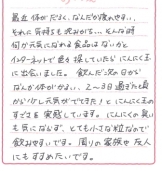 最近 体がだるく、なんだか疲れやすい、
それに 気持ちも沈みがち… そんな時
何か元気になれる食品はないかと
インターネットで色々探していたらにんにく玉
に出会いました。 飲んだ次の日から
なんか体がかるい、2〜3日過ぎた頃
から「少し元気がでてきた!」とにんにく玉の
すごさを実感しています。 にんにくの臭い
も気にならず、とても小さな粒なので
飲みやすいです。 周りの家族や友人
にもすすめたいです。